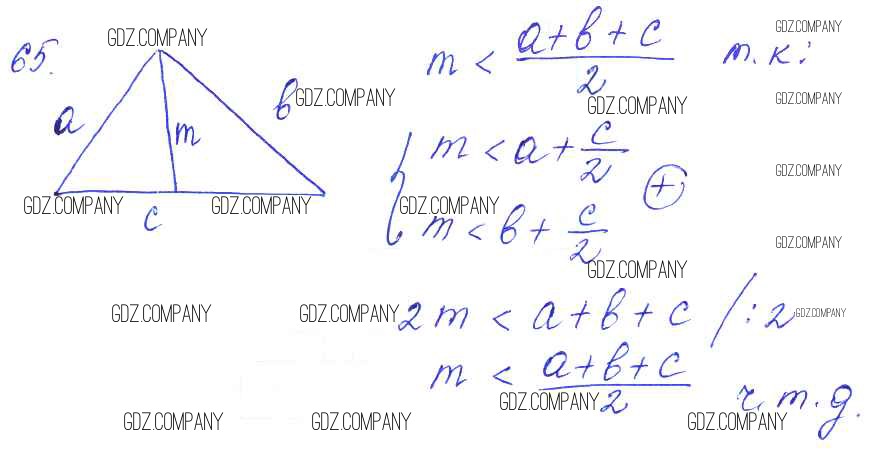 GDZ.COMPANY
65.
m < (a+b+c)/2 т.к:
GDZ.COMPANY
GDZ.COMPANY
GDZ.COMPANY
GDZ.COMPANY
a
b
m
c
{ m < a + c/2
m < b + c/2
(+)
GDZ.COMPANY
GDZ.COMPANY
GDZ.COMPANY
GDZ.COMPANY
GDZ.COMPANY
GDZ.COMPANY
GDZ.COMPANY
GDZ.COMPANY
2m < a+b+c /:2
GDZ.COMPANY
m < (a+b+c)/2
GDZ.COMPANY
ч.т.д.
GDZ.COMPANY
GDZ.COMPANY
GDZ.COMPANY